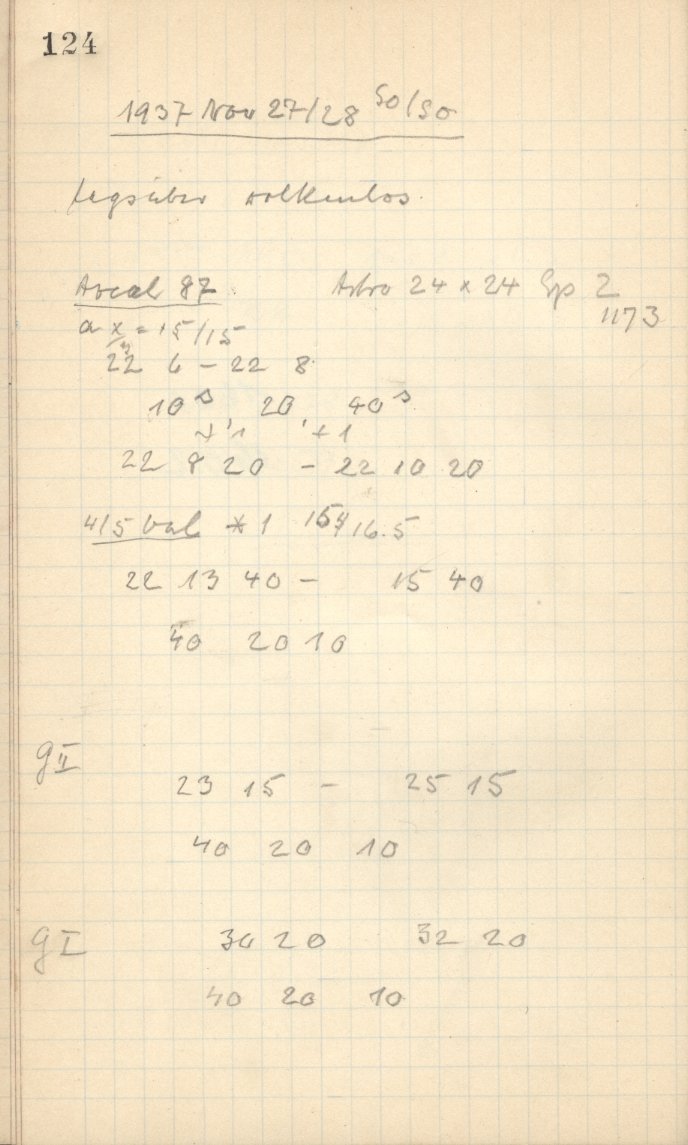 124
1937 Nov 27/28 So/So
tagsüber wolkenlos.
Areal 87 Astro 24 x 24 Sp 2
1173
a x = 15/15
22 6 - 22 8
10 s 20 40 s
+ 1 + 1
22 8 20 - 22 10 20
* 1 16.5
22 13 40 - 15 40
40 20 10
g II
23 15 - 25 15
40 20 10
g I 30 20 32 20
40 20 10